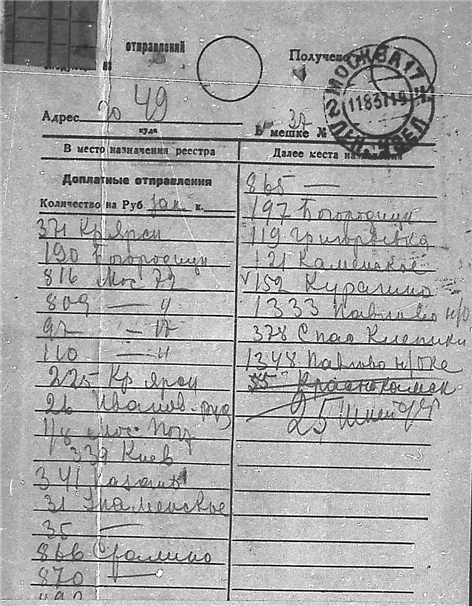 отправлений
Получено
МОСКВА 17
11 8 37 19
Адрес 20 49
куда
В мешке № 37
В место назначения реестра
Далее места назначения
Доплатные отправления
Количество на Руб. зак к.
371 Кр Ярск
190 Богородицк
816 Мос. 72
809 — "
97 — 17
110 — "
225 Кр Ярск
26 Иванов.
118 Мос. Поч
339 Киев
341 Казань
31 Знаменское
35 —
866 Сралино
870 —
865 —
197 Богородицк
119 Григорьевка
121 Каменское
√ 152 Курагино
1333 Павлово н/О
378 Спас Клепики
1248 Павлово н/Оке
55 Краснокамск
25 Шней